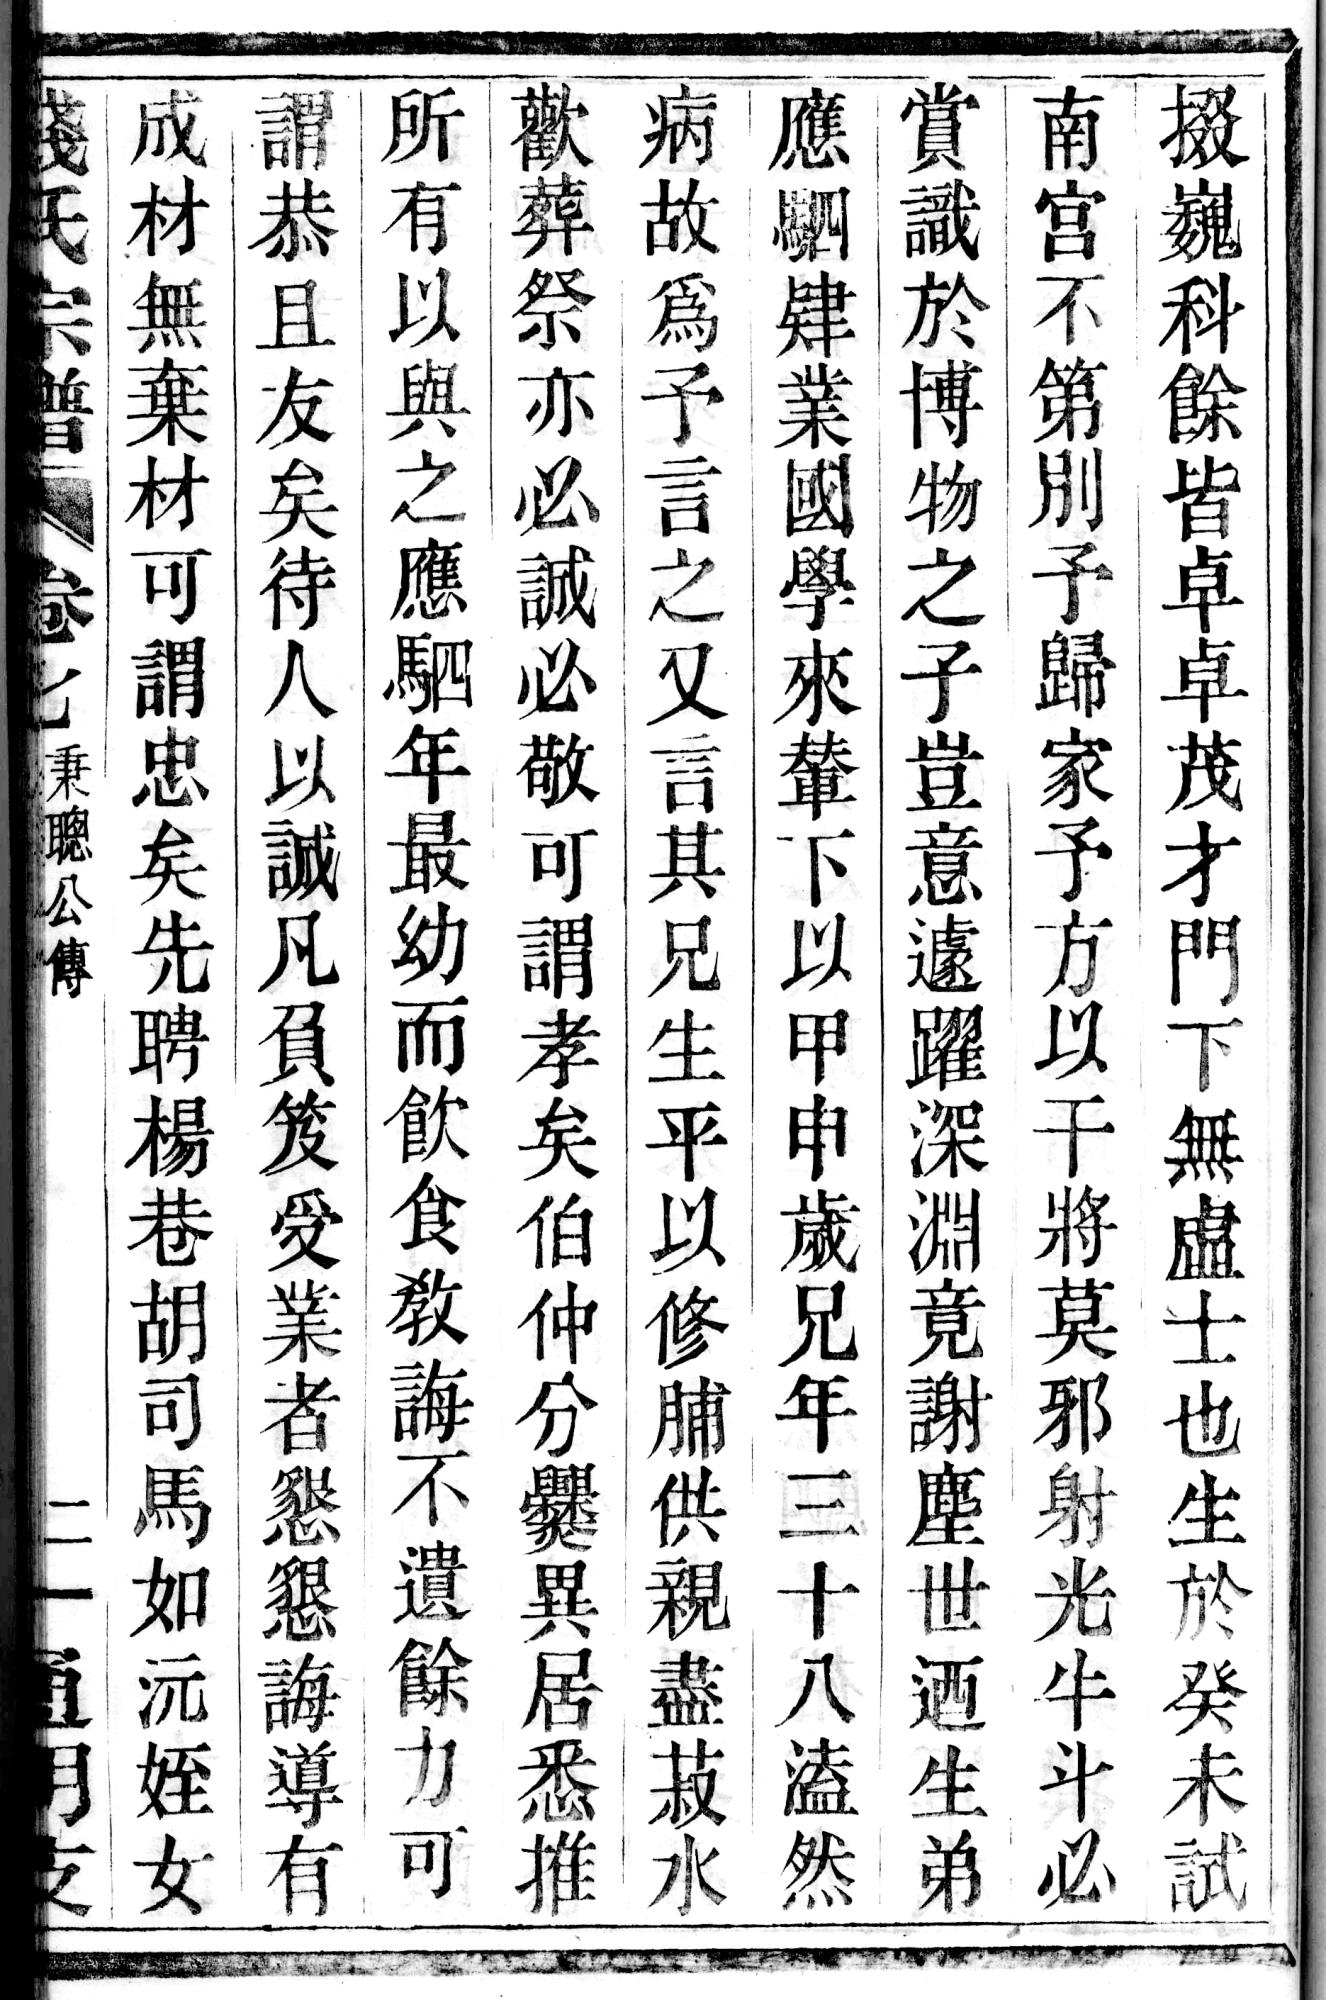 掇巍科餘皆卓卓茂才門下無虛士也生於癸未試
南宫不第別予歸家予方以干將莫邪射光牛斗必
賞識於博物之子豈意遽躍深淵竟謝塵世迺生弟
應駟肄業國學來輦下以甲申歲兄年三十八溘然
病故爲予言之又言其兄生平以修脯供親盡菽水
歡葬祭亦必誠必敬可謂孝矣伯仲分爨異居悉推
所有以與之應駟年最幼而飲食教誨不遺餘力可
謂恭且友矣待人以誠凡負笈受業者懇懇誨導有
成材無棄材可謂忠矣先聘楊巷胡司馬如沅姪女
氏宗譜 卷七 秉聰公傳 二 一 通明支